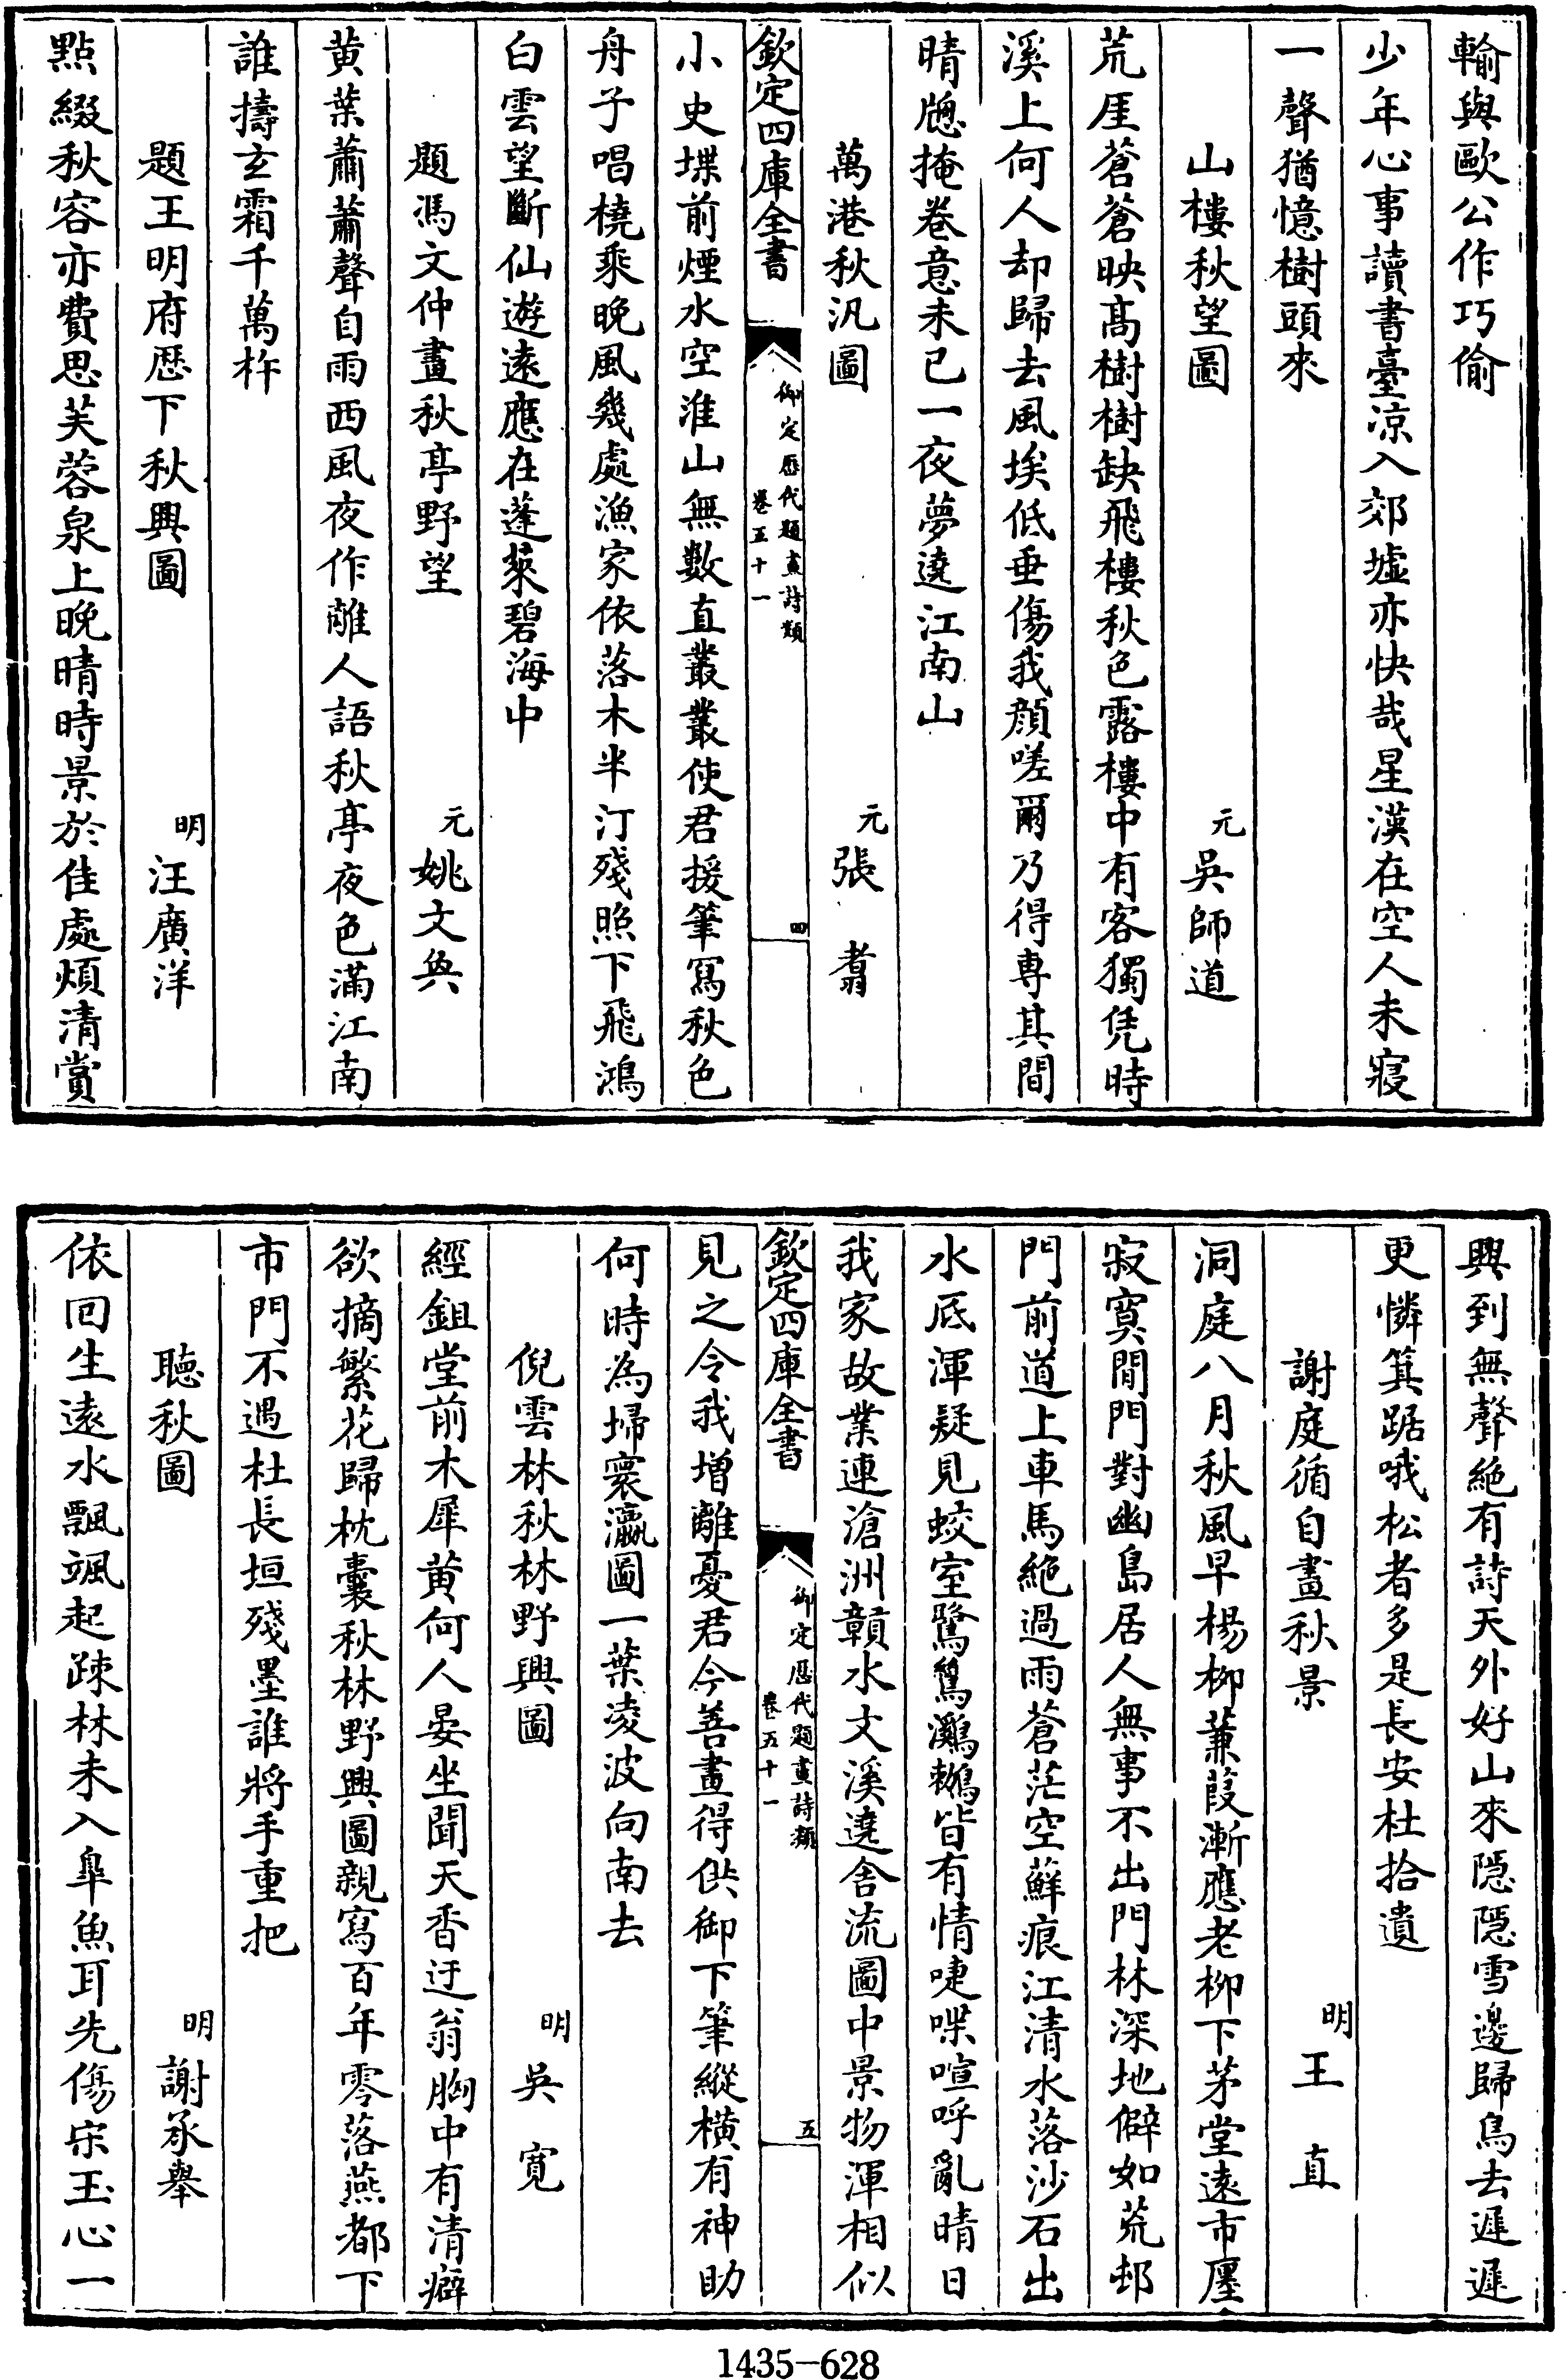 輸與歐公作巧偷
少年心事讀書臺凉入郊墟亦快哉星漢在空人未寢
一聲猶憶樹頭來
山樓秋望圖 元 吳師道
荒厓蒼蒼映髙樹樹缺飛樓秋色露樓中有客獨凭時
溪上何人却歸去風埃低垂傷我顔嗟爾乃得専其間
晴牕掩卷意未已一夜夢遶江南山
萬港秋汎圖 元 張翥
欽定四庫全書 御定歴代題畫詩類 卷五十一 四
小史堞前煙水空淮山無數直叢叢使君援筆寫秋色
舟子唱橈乘晚風幾處漁家依落木半汀殘照下飛鴻
白雲望斷仙遊逺應在蓬萊碧海中
題馮文仲畫秋亭野望 元 姚文奐
黄葉蕭蕭聲自雨西風夜作離人語秋亭夜色滿江南
誰擣玄霜千萬杵
題王明府歴下秋興圖 明 汪廣洋
點綴秋容亦費思芙蓉泉上晚晴時景於佳處煩清賞
興到無聲絶有詩天外好山來隠隠雪邊歸鳥去遲遲
更憐箕踞哦松者多是長安杜拾遺
謝庭循自畫秋景 明 王直
洞庭八月秋風早楊柳蒹葭漸應老柳下茅堂逺市廛
寂寞閒門對幽島居人無事不出門林深地僻如荒邨
門前道上車馬絶過雨蒼茫空蘚痕江清水落沙石出
水底渾疑見蛟室鷺鷥鸂鶒皆有情唼喋喧呼亂晴日
我家故業連滄洲贑水文溪遶舍流圖中景物渾相似
欽定四庫全書 御定歴代題畫詩類 卷五十一 五
見之令我増離憂君今善畫得供御下筆縱横有神助
何時為埽寰瀛圖一葉凌波向南去
倪雲林秋林野興圖 明 吳寛
經鉏堂前木犀黄何人晏坐聞天香迂翁胸中有清癖
欲摘繁花歸枕囊秋林野興圖親寫百年零落燕都下
市門不遇杜長垣殘墨誰將手重把
聴秋圖 明 謝承舉
依回生逺水飄颯起疎林未入臯魚耳先傷宋玉心一
1435-628